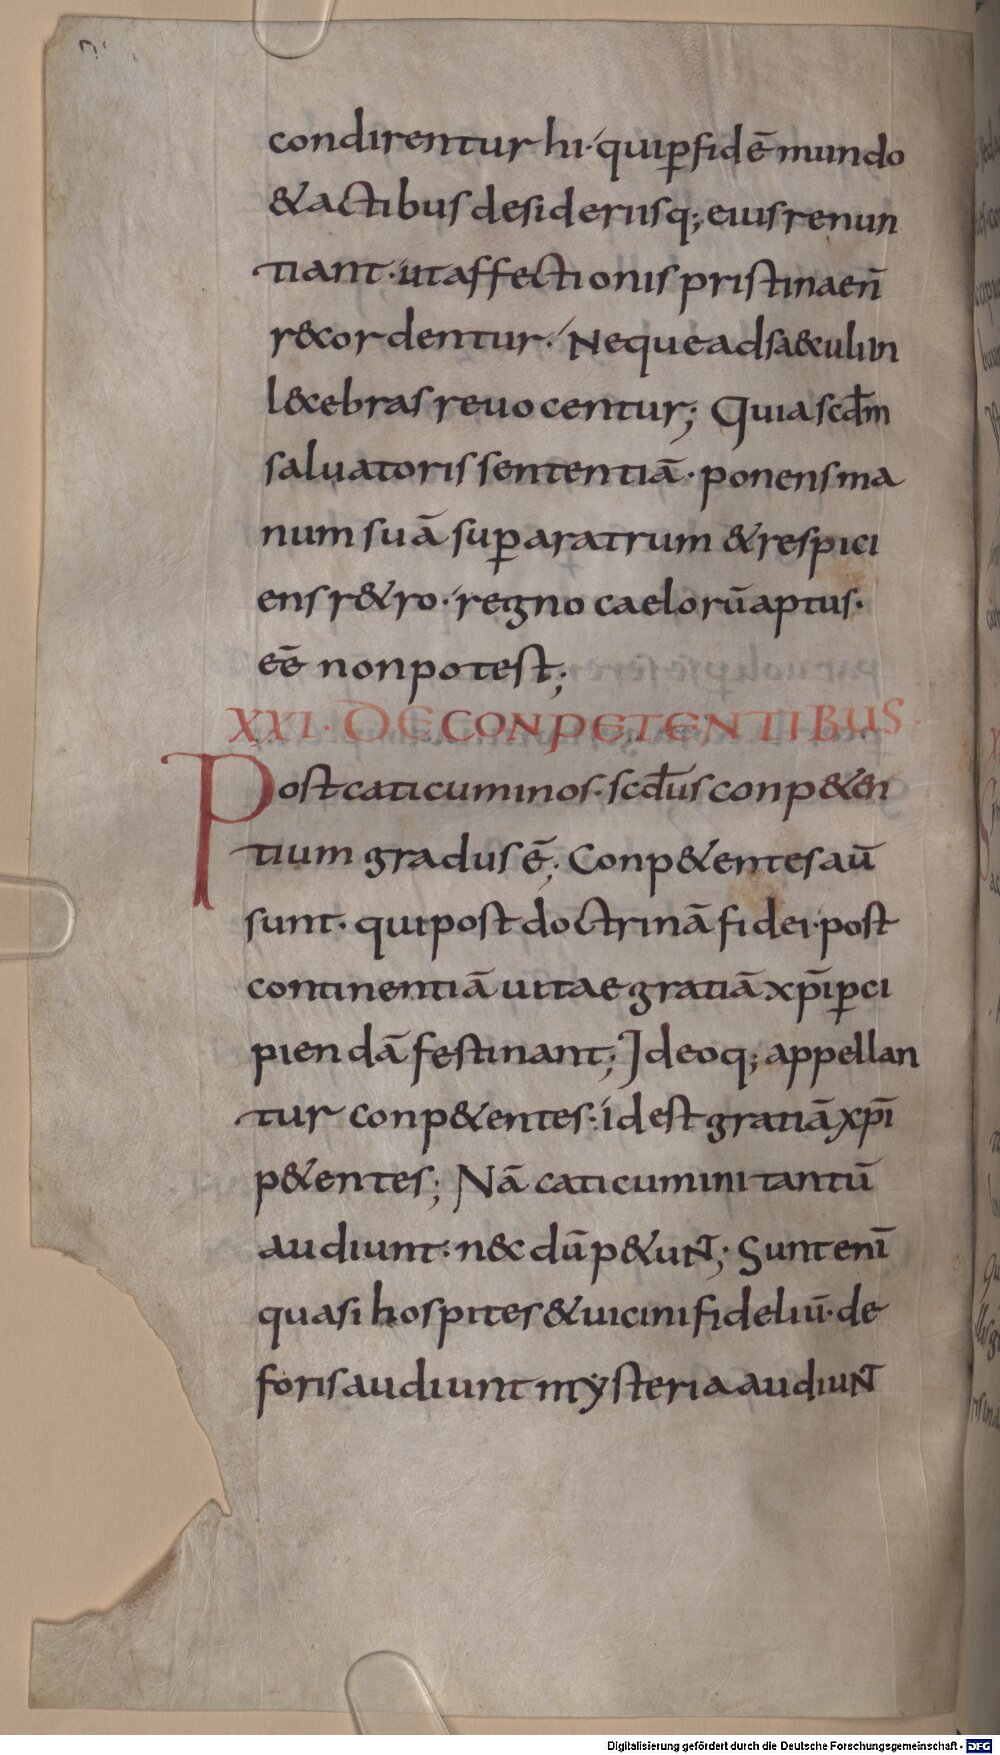 condirentur hi· qui p̲ fidē mundo
& actibus desideriisq; eius renun
tiant· ut affectionis pristinae n̄
r&cordentur· Neque ad sa&culi in
l&cebras reuocentur; Quia scd̄m
saluatoris sententiā· ponens ma
num suā sup̲ aratrum & respici
ens r&ro· regno caelorū aptus·
eē non potest;
XXI· DE CONPETENTIBUS·
Post caticuminos· scd̄us conp&en
tium gradus ē; Conp&entes aū
sunt· qui post doctrinā fidei· post
continentiā uitae gratiā xp̄i p̲ci
piendā festinant; Ideoq; appellan
tur conp&entes· id est gratiā xp̄i
p&entes; Nā caticumini tantū
audiunt· n&c dū p&unt; Sunt enī
quasi hospites & uicini fideliū· de
foris audiunt mysteria audiunt
Digitalisierung gefördert durch die Deutsche Forschungsgemeinschaft - DFG